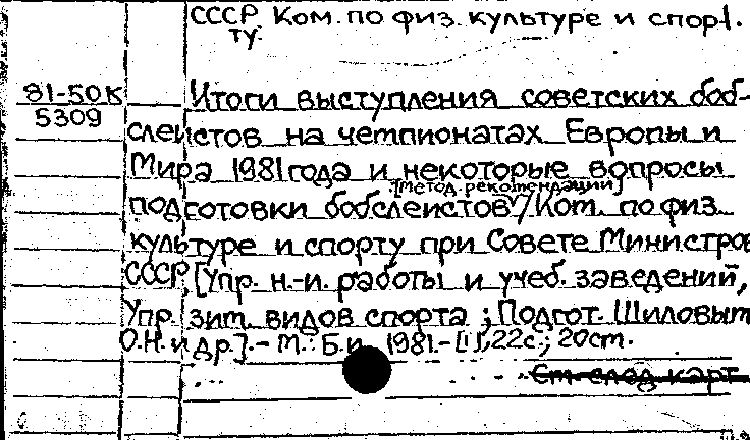 СССР. Ком. по физ. культуре и спор-
ту.
81-50К
5309
Итоги выступления советских боб-
слеистов на чемпионатах Европы и
Мира 1981 года и некоторые вопросы
[Метод. рекомендации]
подготовки бобслеистов / Ком. по физ.
культуре и спорту при Совете Министров
СССР, [Упр. н.-и. работы и учеб. заведений,
Упр. зим. видов спорта ; Подгот. Шиловым
О.Н. и др.]. - М. : Б.и., 1981. - [1], 22с.; 20см.
См. след. карт.